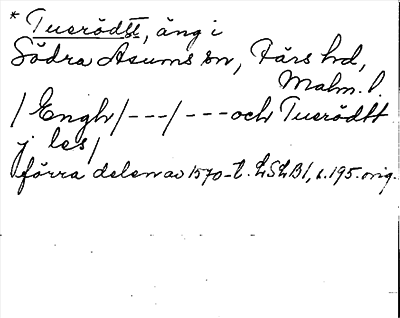 * Tuerödtt, äng i
Södra Åsums sn, Färs hd,
Malm. l.
/Engh/---/---och Tuerödtt
j les/
förra delen av 1570-t. LSLB1, s.195. orig.